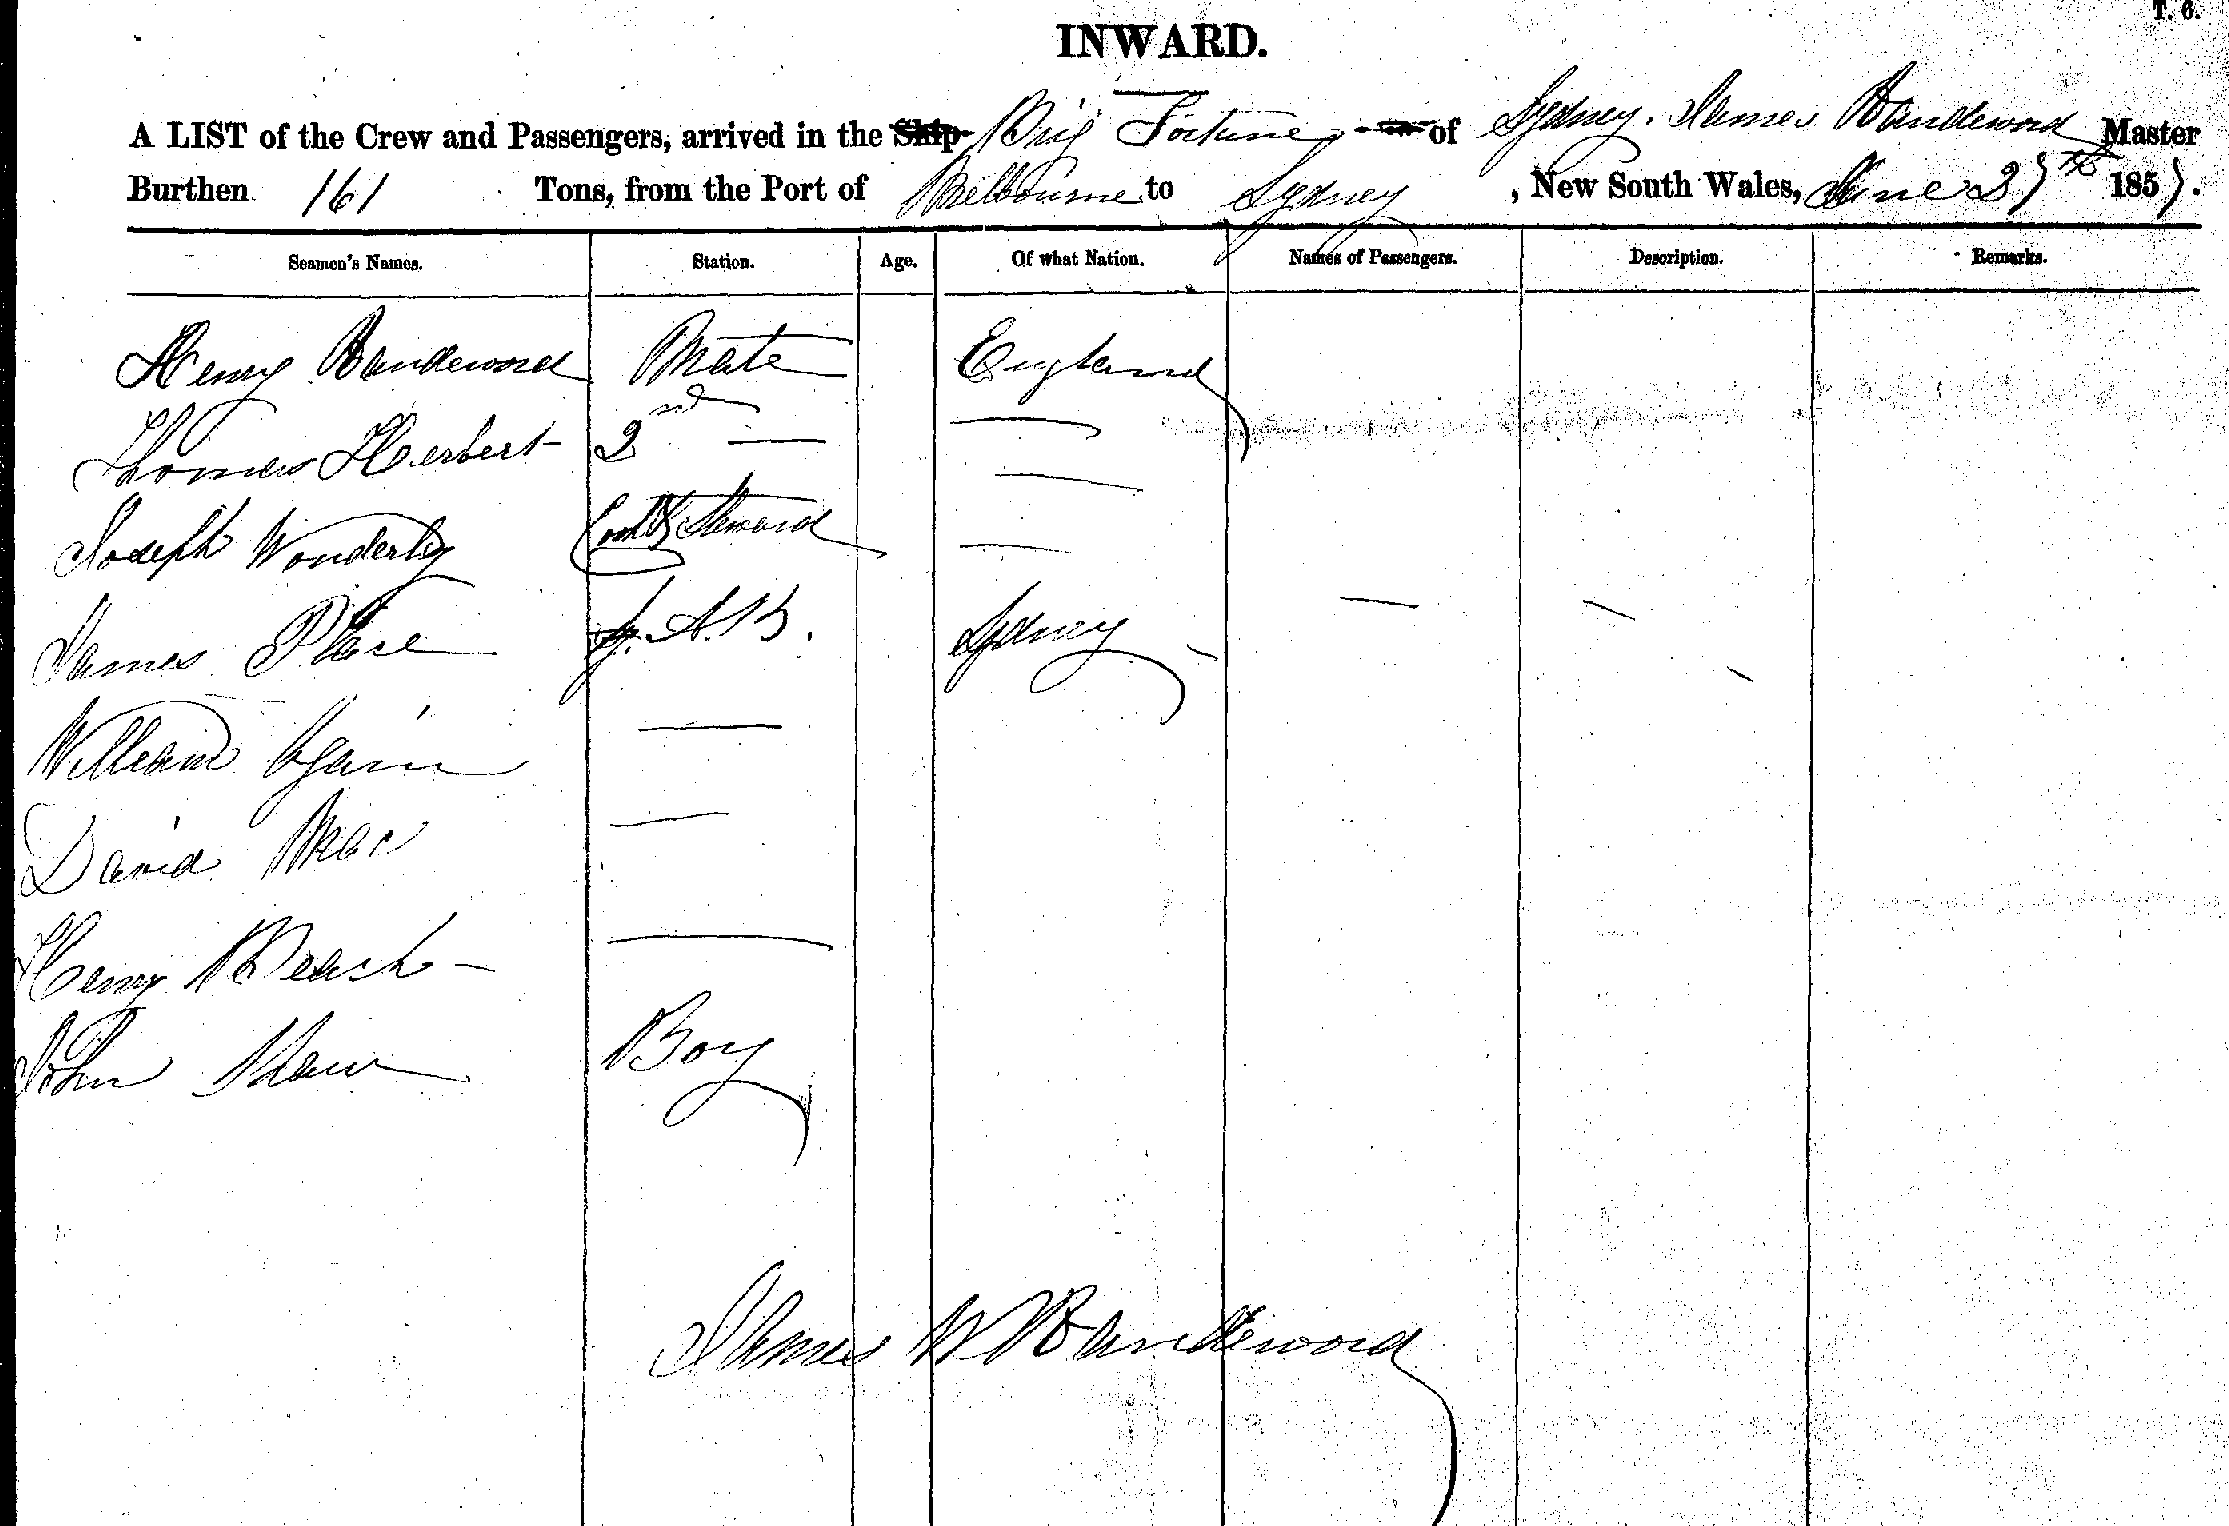 T. 6.
INWARD.
A LIST of the Crew and Passengers, arrived in the Ship Brig Fortune of Sydney. James Bandeword Master
Burthen 161 Tons, from the Port of Melbourne to Sydney, New South Wales, June 27th 1857.
Seamen's Names. Station. Age. Of what Nation. Names of Passengers. Description. Remarks.
Henry Bandeword Mate England
Thomas Herbert 2nd —
Joseph Wonderly Cook & Steward —
James Place A.B. Sydney — —
William —
David —
Henry Beach — —
John Shaw Boy
James W Bandeword